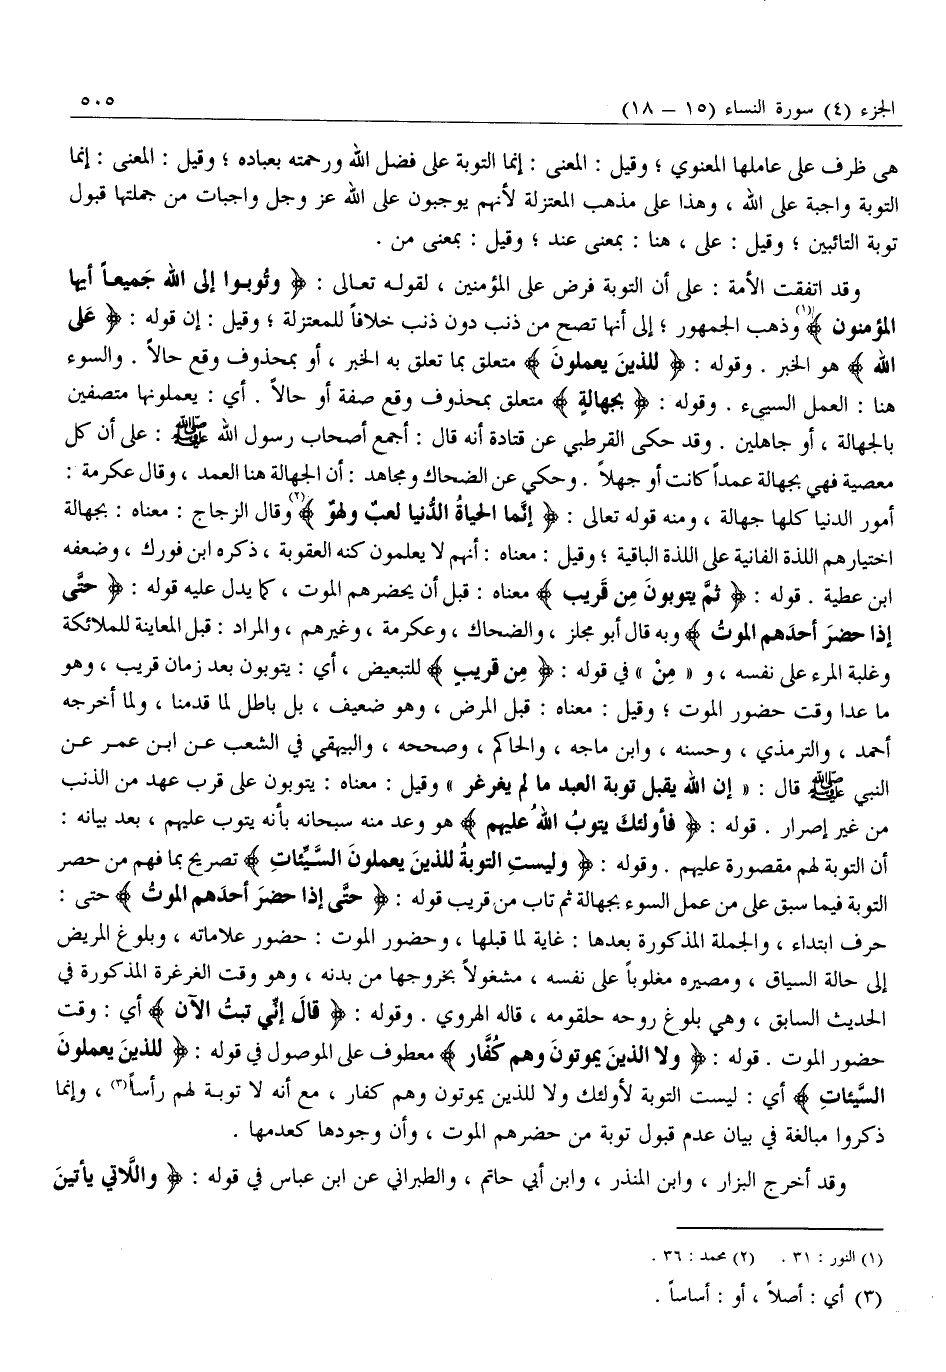 الجزء (٤) سورة النساء (١٥ – ١٨)
٥٠٥
هى ظرف على عاملها المعنوي ؛ وقيل : المعنى : إنما التوبة على فضل الله ورحمته بعباده ؛ وقيل : المعنى : إنما
التوبة واجبة على الله ، وهذا على مذهب المعتزلة لأنهم يوجبون على الله عز وجل واجبات من جملتها قبول
توبة التائبين ؛ وقيل : على ، هنا : بمعنى عند ؛ وقيل : بمعنى من .
وقد اتفقت الأمة : على أن التوبة فرض على المؤمنين ، لقوله تعالى : ﴿ وتُوبوا إلى الله جَميعاً أيها
المؤمنون ﴾(١) وذهب الجمهور ؛ إلى أنها تصح من ذنب دون ذنب خلافاً للمعتزلة ؛ وقيل : إن قوله : ﴿ عَلى
الله ﴾ هو الخبر . وقوله : ﴿ للذينَ يعملونَ ﴾ متعلق بما تعلق به الخبر ، أو بمحذوف وقع حالاً . والسوء
هنا : العمل السيىء . وقوله : ﴿ بجهالةٍ ﴾ متعلق بمحذوف وقع صفة أو حالاً . أي : يعملونها متصفين
بالجهالة ، أو جاهلين . وقد حكى القرطبي عن قتادة أنه قال : أجمع أصحاب رسول الله ﷺ : على أن كل
معصية فهي بجهالة عمداً كانت أو جهلاً . وحكي عن الضحاك ومجاهد : أن الجهالة هنا العمد ، وقال عكرمة :
أمور الدنيا كلها جهالة ، ومنه قوله تعالى : ﴿ إنَّما الحياةُ الدُّنيا لعبٌ ولهوٌ ﴾(٢) وقال الزجاج : معناه : بجهالة
اختيارهم اللذة الفانية على اللذة الباقية ؛ وقيل : معناه : أنهم لا يعلمون كنه العقوبة ، ذكره ابن فورك ، وضعفه
ابن عطية . قوله : ﴿ ثمَّ يتوبونَ مِن قَريب ﴾ معناه : قبل أن يحضرهم الموت ، كما يدل عليه قوله : ﴿ حتَّى
إذا حضرَ أحدَهم الموتُ ﴾ وبه قال أبو مجلز ، والضحاك ، وعكرمة ، وغيرهم ، والمراد : قبل المعاينة للملائكة
وغلبة المرء على نفسه ، و « مِنْ » في قوله : ﴿ مِن قريبٍ ﴾ للتبعيض ، أي : يتوبون بعد زمان قريب ، وهو
ما عدا وقت حضور الموت ؛ وقيل : معناه : قبل المرض ، وهو ضعيف ، بل باطل لما قدمنا ، ولما أخرجه
أحمد ، والترمذي ، وحسنه ، وابن ماجه ، والحاكم ، وصححه ، والبيهقي في الشعب عن ابن عمر عن
النبي ﷺ قال : « إن الله يقبل توبة العبد ما لم يغرغر » وقيل : معناه : يتوبون على قرب عهد من الذنب
من غير إصرار . قوله : ﴿ فأولئكَ يتوبُ اللهُ عليهم ﴾ هو وعد منه سبحانه بأنه يتوب عليهم ، بعد بيانه :
أن التوبة لهم مقصورة عليهم . وقوله : ﴿ وليستِ التوبةُ للذينَ يعملونَ السَّيِّئاتِ ﴾ تصريح بما فهم من حصر
التوبة فيما سبق على من عمل السوء بجهالة ثم تاب من قريب قوله : ﴿ حتَّى إذا حضرَ أحدَهم الموتُ ﴾ حتى :
حرف ابتداء ، والجملة المذكورة بعدها : غاية لما قبلها ، وحضور الموت : حضور علاماته ، وبلوغ المريض
إلى حالة السياق ، ومصيره مغلوباً على نفسه ، مشغولاً بخروجها من بدنه ، وهو وقت الغرغرة المذكورة في
الحديث السابق ، وهي بلوغ روحه حلقومه ، قاله الهروي . وقوله : ﴿ قالَ إنِّي تبتُ الآن ﴾ أي : وقت
حضور الموت . قوله : ﴿ ولا الذينَ يموتونَ وهم كُفَّار ﴾ معطوف على الموصول في قوله : ﴿ للذينَ يعملونَ
السَّيِّئاتِ ﴾ أي : ليست التوبة لأولئك ولا للذين يموتون وهم كفار ، مع أنه لا توبة لهم رأساً(٣) ، وإنما
ذكروا مبالغة في بيان عدم قبول توبة من حضرهم الموت ، وأن وجودها كعدمها .
وقد أخرج البزار ، وابن المنذر ، وابن أبي حاتم ، والطبراني عن ابن عباس في قوله : ﴿ واللَّاتي يأتينَ
(١) النور : ٣١ . (٢) محمد : ٣٦ .
(٣) أي : أصلاً ، أو : أساساً .